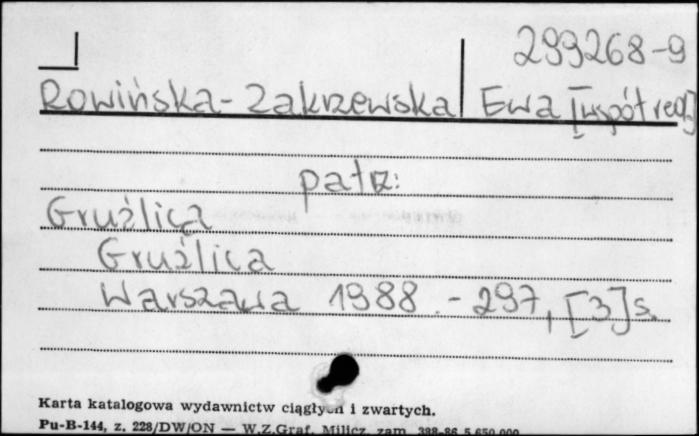 299268-9
Rowińska-Zakrzewska Ewa [współred.]
patrz:
Gruźlica
Gruźlica
Warszawa 1988. - 297, [3] s.
Karta katalogowa wydawnictw ciągłych i zwartych.
Pu-B-144, z. 228/DW/ON — W.Z.Graf. Milicz, zam. 388-86 5.650.000